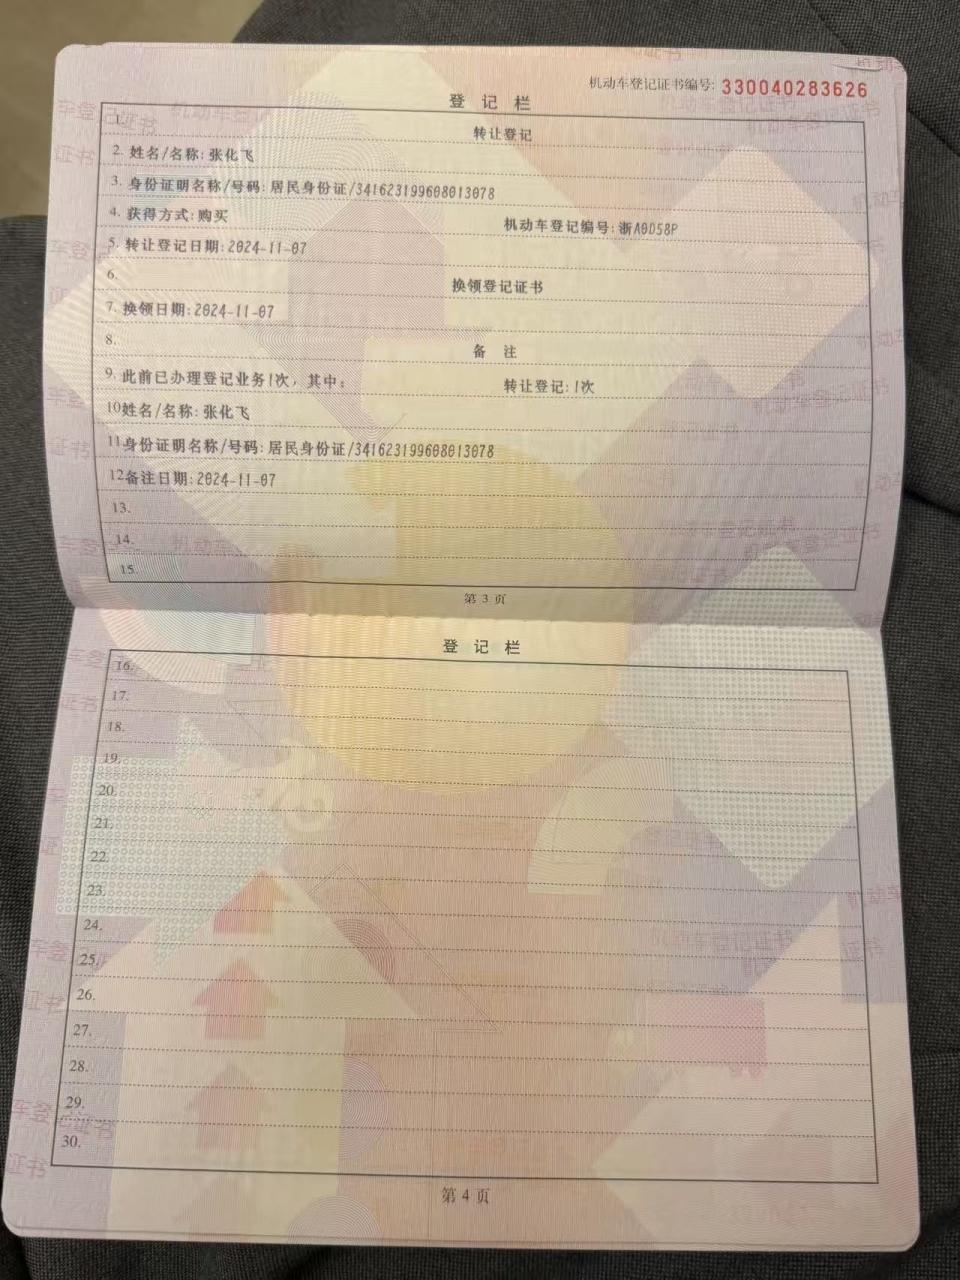 机动车登记证书编号: 330040283626
登 记 栏
1. 转让登记
2. 姓名/名称: 张化飞
3. 身份证明名称/号码: 居民身份证/341623199608013078
4. 获得方式: 购买 机动车登记编号: 浙A0D58P
5. 转让登记日期: 2024-11-07
6. 换领登记证书
7. 换领日期: 2024-11-07
8. 备 注
9. 此前已办理登记业务1次，其中: 转让登记: 1次
10 姓名/名称: 张化飞
11 身份证明名称/号码: 居民身份证/341623199608013078
12 备注日期: 2024-11-07
13.
14.
15.
第 3 页
登 记 栏
16.
17.
18.
19.
20.
21.
22.
23.
24.
25.
26.
27.
28.
29.
30.
第 4 页